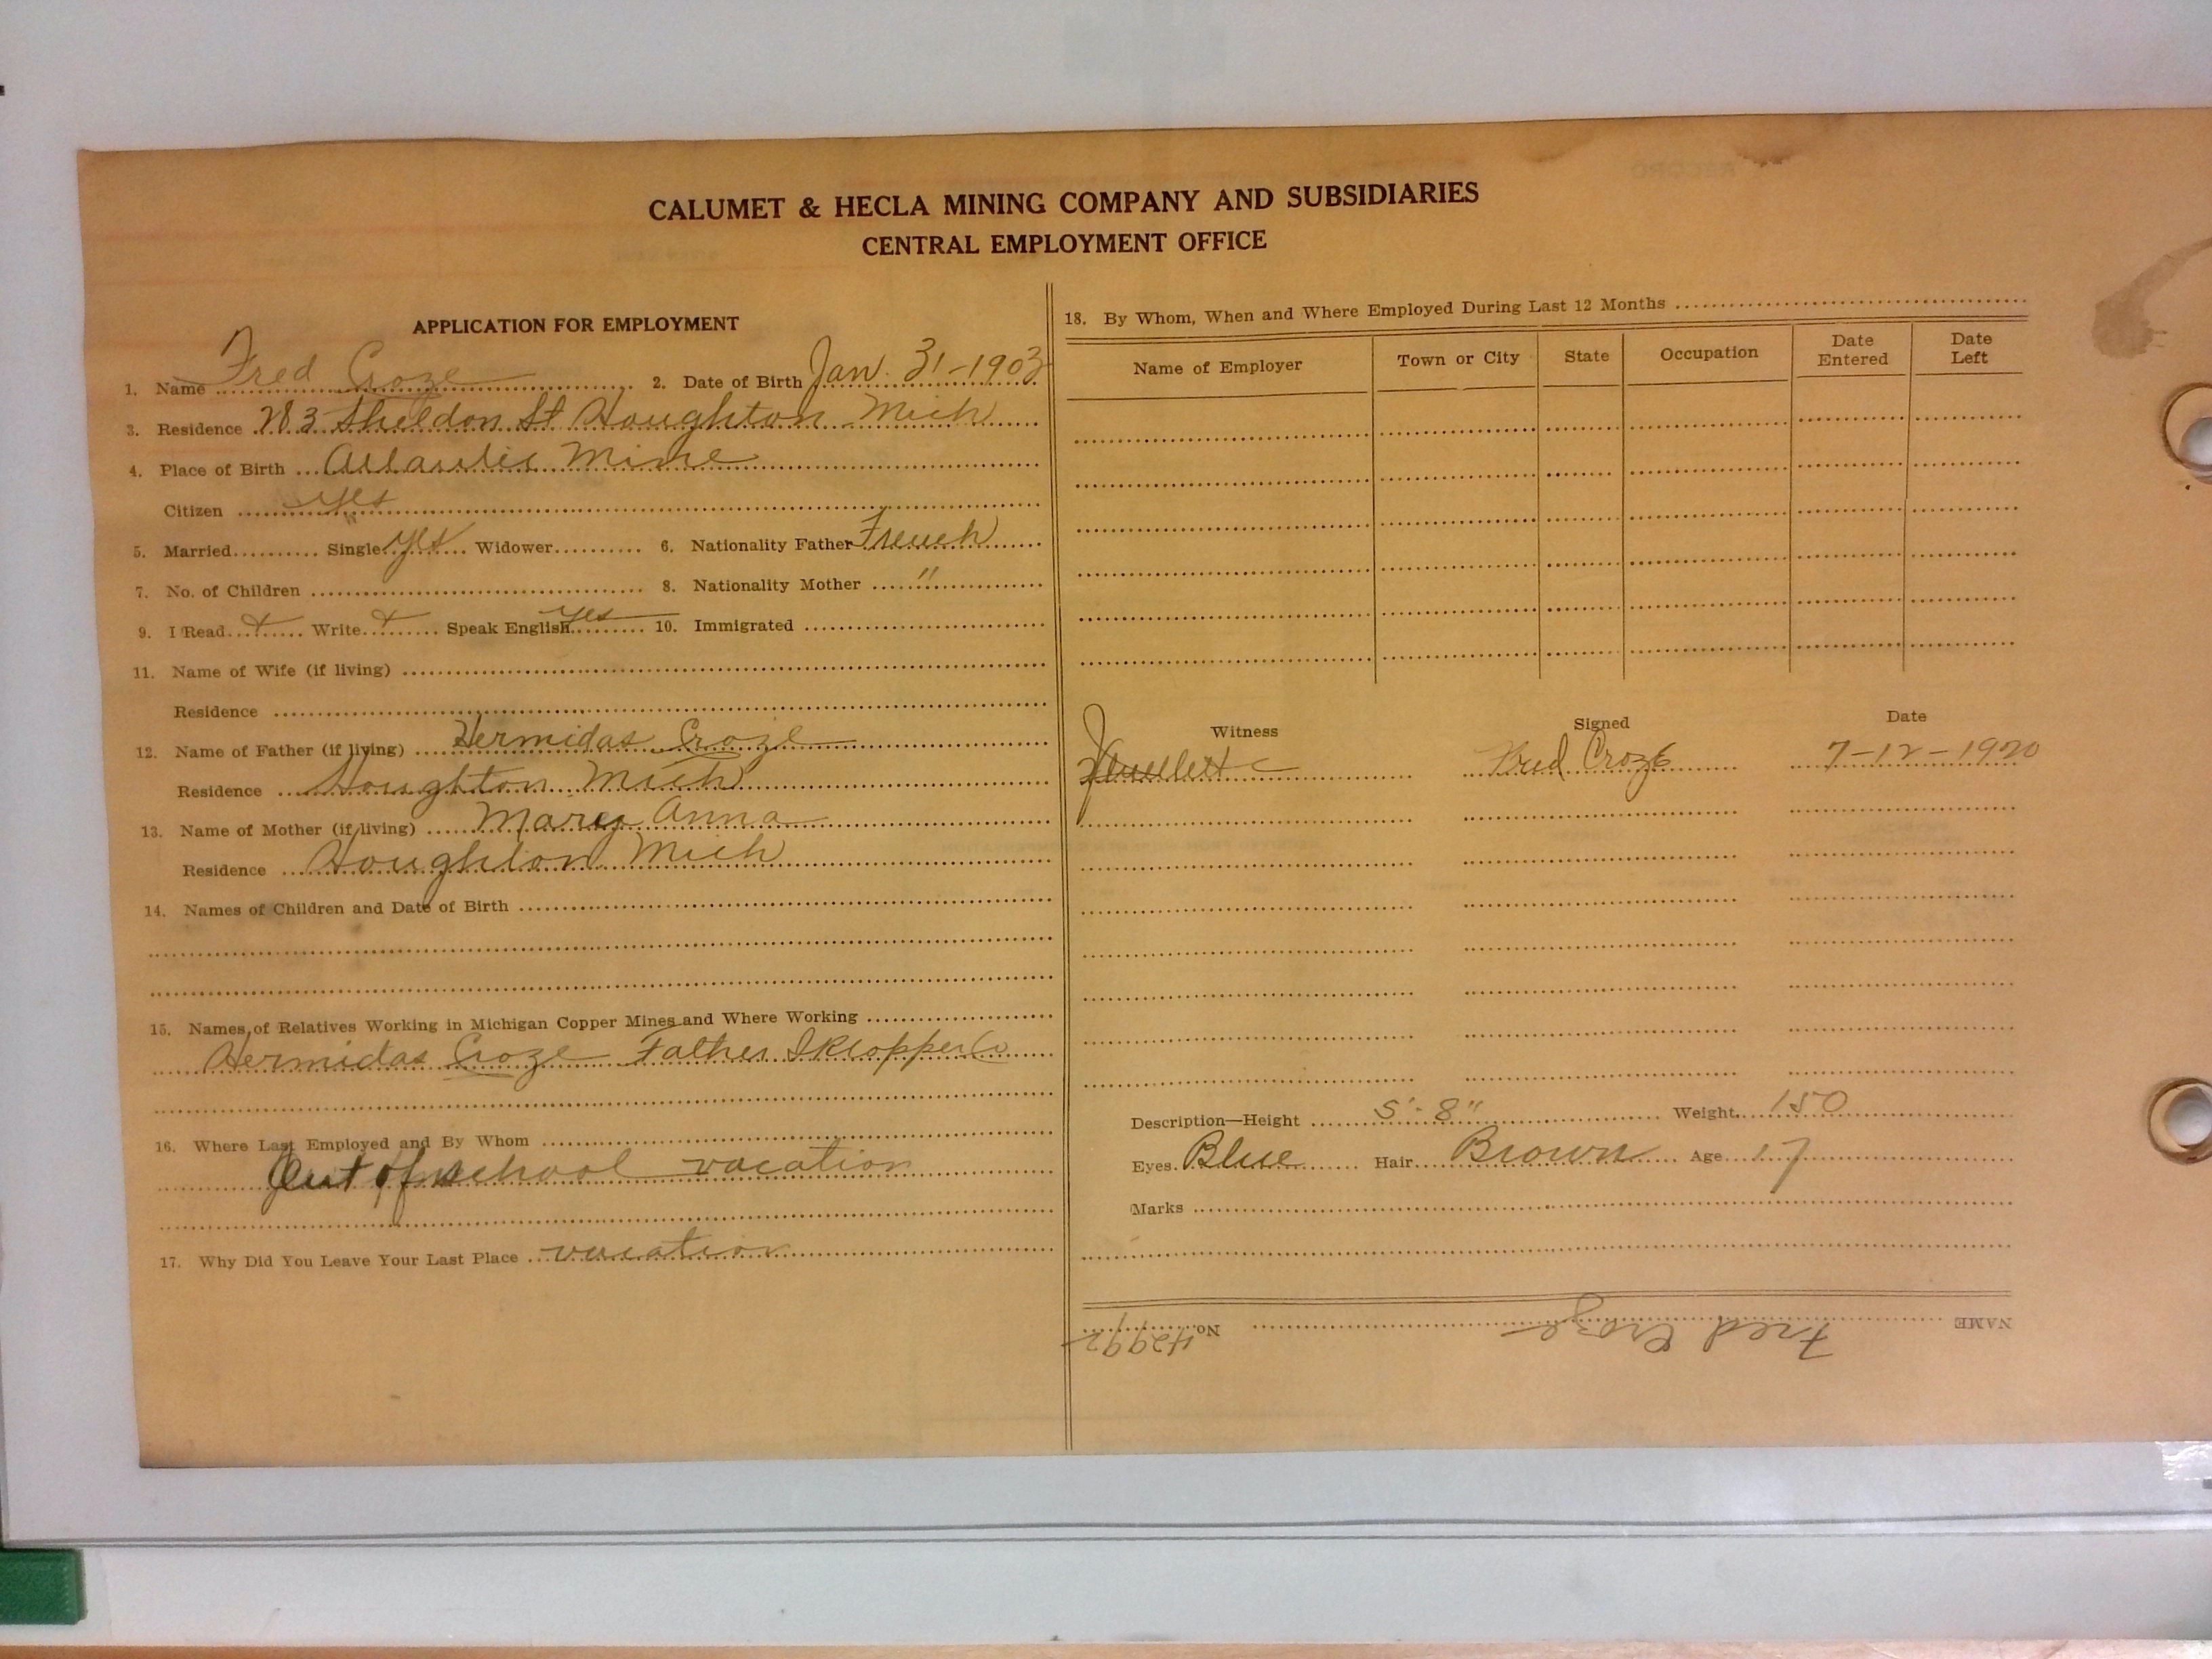 CALUMET & HECLA MINING COMPANY AND SUBSIDIARIES
CENTRAL EMPLOYMENT OFFICE
APPLICATION FOR EMPLOYMENT
1. Name Fred Croze 2. Date of Birth Jan. 31-1903
3. Residence 283 Sheldon St Houghton Mich
4. Place of Birth Atlantic Mine
Citizen yes
5. Married Single yes Widower 6. Nationality Father French
7. No. of Children 8. Nationality Mother "
9. I Read + Write + Speak English yes 10. Immigrated
11. Name of Wife (if living)
Residence
12. Name of Father (if living) Hermidas Croze
Residence Houghton Mich
13. Name of Mother (if living) Mary Anna
Residence Houghton Mich
14. Names of Children and Date of Birth
15. Names of Relatives Working in Michigan Copper Mines and Where Working
Hermidas Croze Father
16. Where Last Employed and By Whom
Out of school vacation
17. Why Did You Leave Your Last Place vacation
18. By Whom, When and Where Employed During Last 12 Months
Name of Employer Town or City State Occupation Date Entered Date Left
Witness Signed Date
Fred Croze 7-12-1920
Description—Height 5'-8" Weight 150
Eyes Blue Hair Brown Age 17
Marks
NAME Fred Croze No. 42992